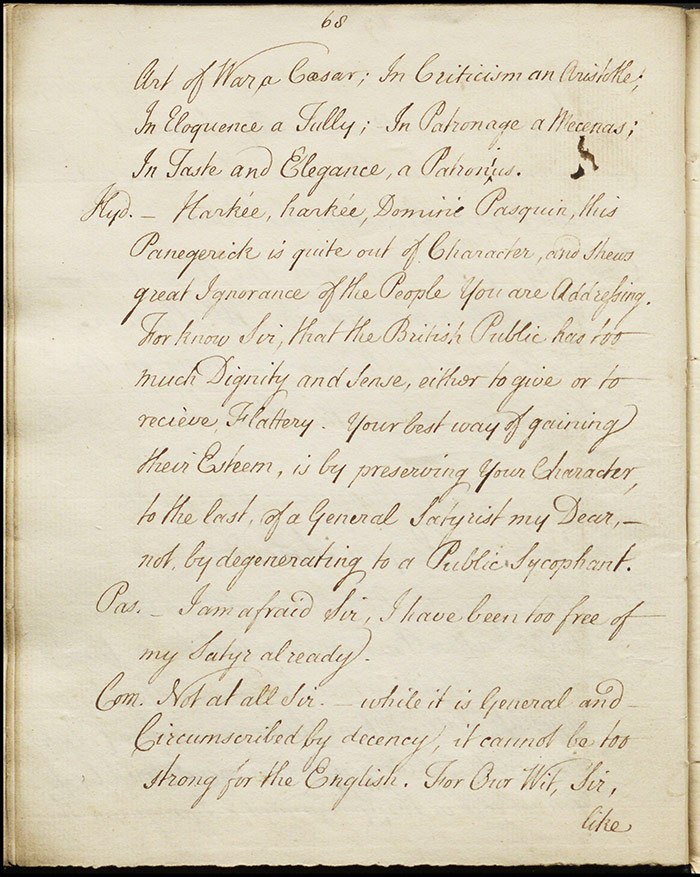 68
Art of War a Cæsar; In Criticism an Aristotle;
In Eloquence a Tully; In Patronage a Mecenas;
In Taste and Elegance, a Patronius.
Hyd. – Harkée, harkée, Dominie Pasquin, this
Panegerick is quite out of Character, and shews
great Ignorance of the People You are Addressing.
For know Sir, that the British Public has too
much Dignity and Sense, either to give or to
recieve Flattery. Your best way of gaining
their Esteem, is by preserving Your Character,
to the last, of a General Satyrist my Dear, –
not, by degenerating to a Public Sycophant.
Pas. – I am afraid Sir, I have been too free of
my Satyr already.
Com. Not at all Sir. – while it is General and
Circumscribed by decency, it cannot be too
strong for the English. For Our Wit, Sir,
like